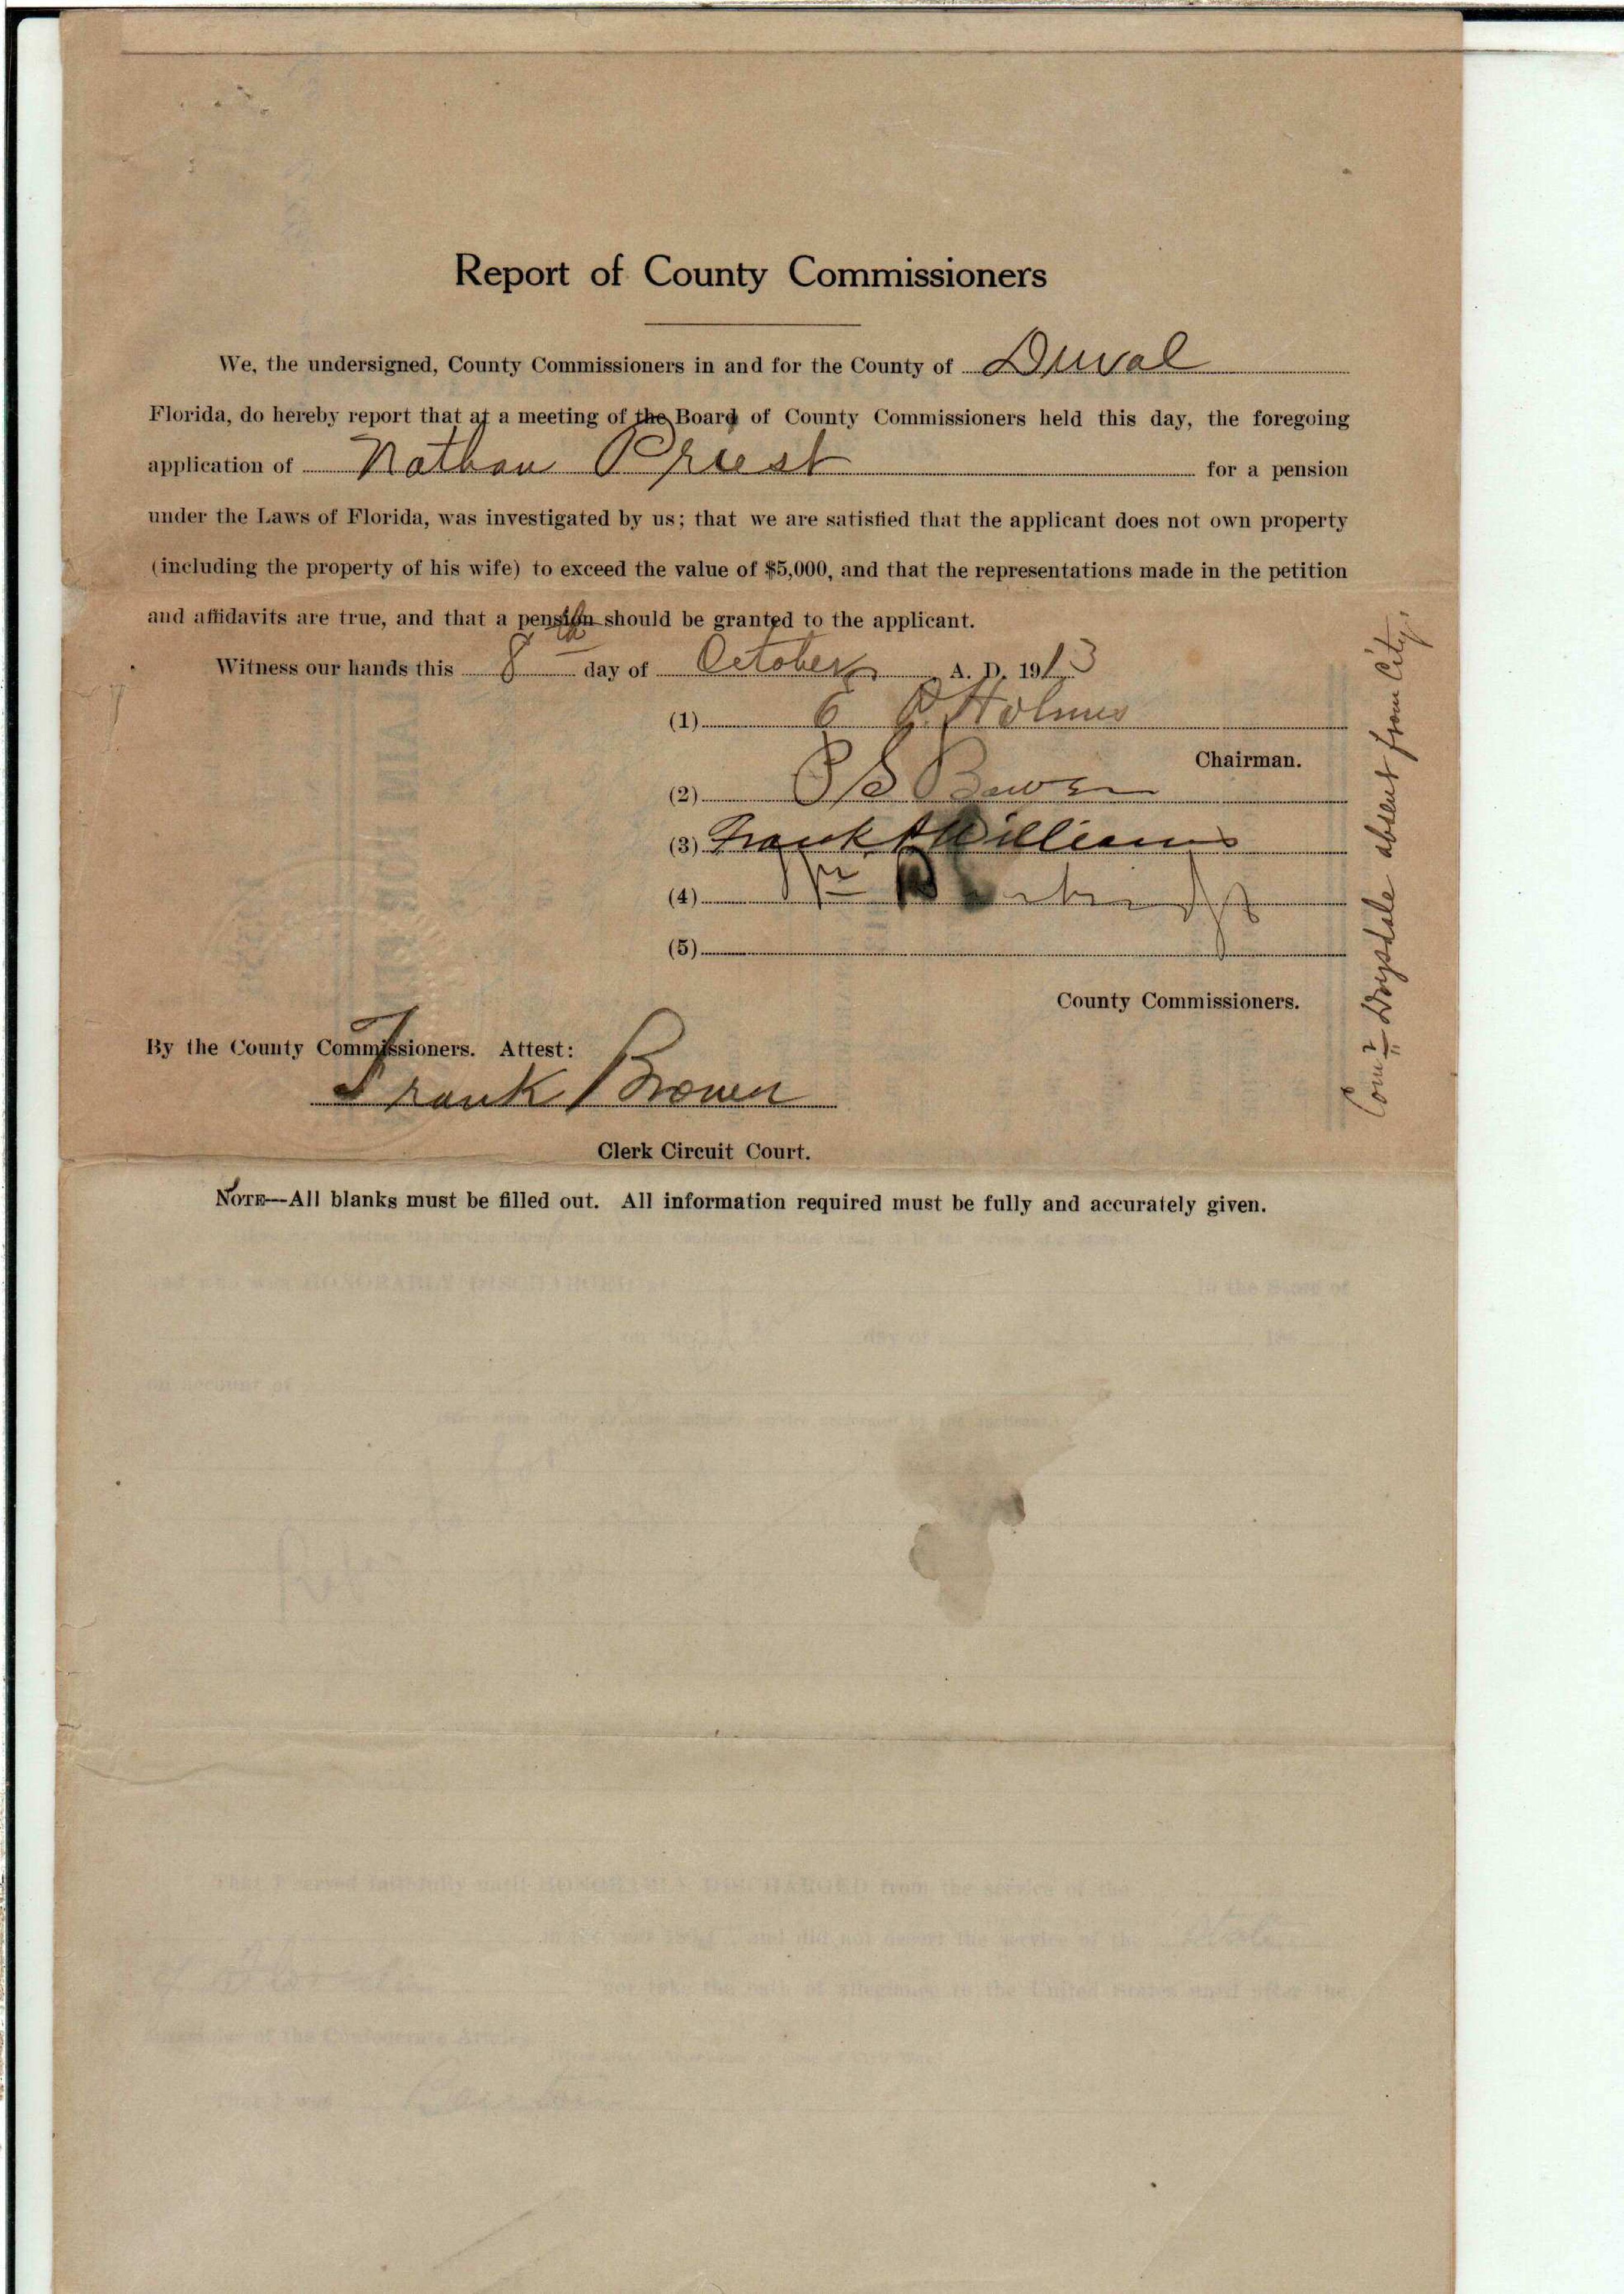 Report of County Commissioners
We, the undersigned, County Commissioners in and for the County of Duval
Florida, do hereby report that at a meeting of the Board of County Commissioners held this day, the foregoing
application of Nathan Priest for a pension
under the Laws of Florida, was investigated by us; that we are satisfied that the applicant does not own property
(including the property of his wife) to exceed the value of $5,000, and that the representations made in the petition
and affidavits are true, and that a pension should be granted to the applicant.
Witness our hands this 8th day of October A. D. 1913
(1) Holmes
Chairman.
(2) P S Bowen
(3) Frank Williams
(4)
(5)
County Commissioners.
By the County Commissioners. Attest:
Frank Brown
Clerk Circuit Court.
NOTE—All blanks must be filled out. All information required must be fully and accurately given.
Com'r Drysdale absent from City.